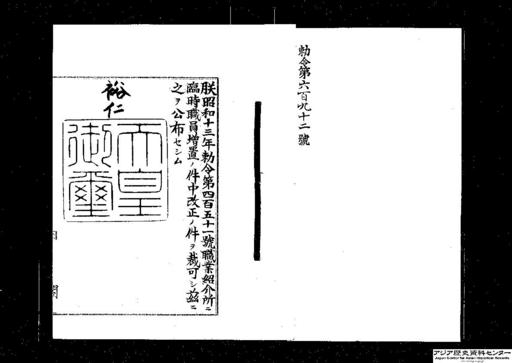 勅令第六百九十二號
朕昭和十三年勅令第四百五十一號職業紹介所ニ
臨時職員増置ノ件中改正ノ件ヲ裁可シ茲ニ
之ヲ公布セシム
裕仁
天皇
御璽
アジア歴史資料センター
Japan Center for Asian Historical Records